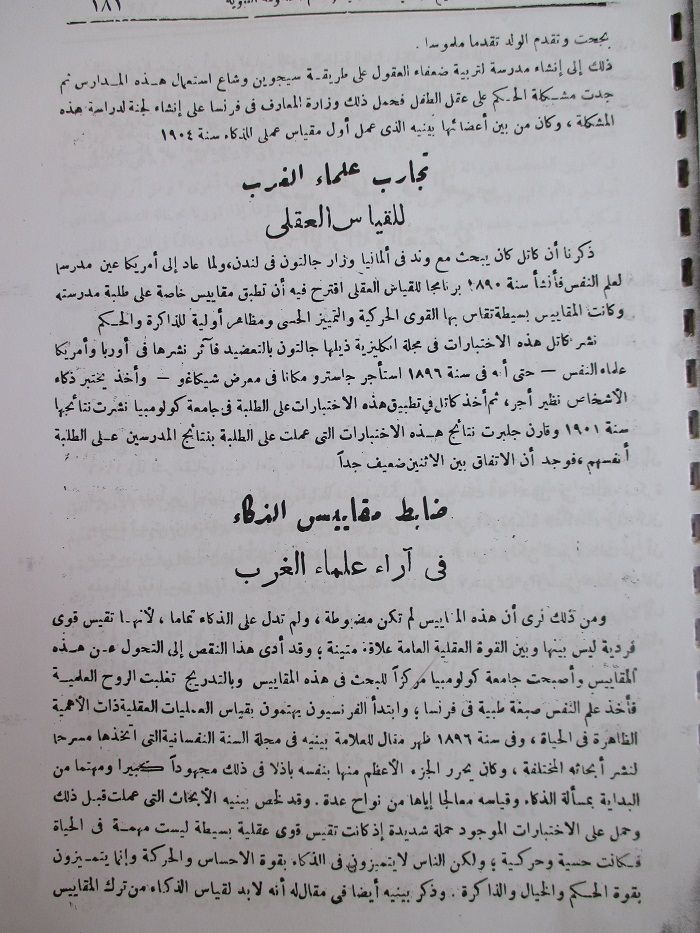 ١٨١
بجحت وتقدم الولد تقدما ملموسا .
ذلك إلى إنشاء مدرسة لتربية ضعفاء العقول على طريقة سيجوين وشاع استعمال هذه المدارس ثم
جدت مشكلة الحكم على عقل الطفل فحمل ذلك وزارة المعارف فى فرنسا على إنشاء لجنة لدراسة هذه
المشكلة ، وكان من بين أعضائها بينيه الذى عمل أول مقياس عملى للذكاء سنة ١٩٠٤
تجارب علماء الغرب
للقياس العقلى
ذكرنا أن كاتل كان يبحث مع وند فى ألمانيا وزار جالتون فى لندن، ولما عاد إلى أمريكا عين مدرسا
لعلم النفس فأنشأ سنة ١٨٩٠ برنامجا للقياس العقلى اقترح فيه أن تطبق مقاييس خاصة على طلبة مدرسته
وكانت المقاييس بسيطة تقاس بها القوى الحركية والتمييز الحسى ومظاهر أولية للذاكرة والحكم
نشر كاتل هذه الاختبارات فى مجلة انكليزية ذيلها جالتون بالتعضيد فآثر نشرها فى أوربا وأمريكا
علماء النفس — حتى أنه فى سنة ١٨٩٦ استأجر جاسترو مكانا فى معرض شيكاغو — وأخذ يختبر ذكاء
الأشخاص نظير أجر، ثم أخذ كاتل فى تطبيق هذه الاختبارات على الطلبة فى جامعة كولومبيا نشرت نتائجها
سنة ١٩٠١ وقارن جلبرت نتائج هذه الاختبارات التى عملت على الطلبة بنتائج المدرسين على الطلبة
أنفسهم ، فوجد أن الاتفاق بين الاثنين ضعيف جداً
ضابط مقاييس الذكاء
فى آراء علماء العرب
ومن ذلك نرى أن هذه المقاييس لم تكن مضبوطة ، ولم تدل على الذكاء تماما ، لأنها تقيس قوى
فردية ليس بينها وبين القوة العقلية العامة علاقة متينة ؛ وقد أدى هذا النقص إلى التحول عن هذه
المقاييس وأصبحت جامعة كولومبيا مركزاً للبحث فى هذه المقاييس وبالتدريج تغلبت الروح العلمية
فأخذ علم النفس صبغة طبية فى فرنسا ؛ وابتدأ الفرنسيون يهتمون بقياس العمليات العقلية ذات الأهمية
الظاهرة فى الحياة ، وفى سنة ١٨٩٦ ظهر مقال للعلامة بينيه فى مجلة السنة النفسانية التى اتخذها مسرحا
لنشر أبحاثه المختلفة ، وكان يحرر الجزء الأعظم منها بنفسه باذلا فى ذلك مجهوداً كبيرا ومهتما من
البداية بمسألة الذكاء وقياسه معالجا إياها من نواح عدة . وقد لخص بينيه الأبحاث التى عملت قبل ذلك
وحمل على الاختبارات الموجود حملة شديدة إذ كانت تقيس قوى عقلية بسيطة ليست مهمة فى الحياة
فكانت حسية وحركية ؛ ولكن الناس لا يتميزون فى الذكاء بقوة الاحساس والحركة وإنما يتميزون
بقوة الحكم والخيال والذاكرة . وذكر بينيه أيضا فى مقاله أنه لابد لقياس الذكاء من ترك المقاييس